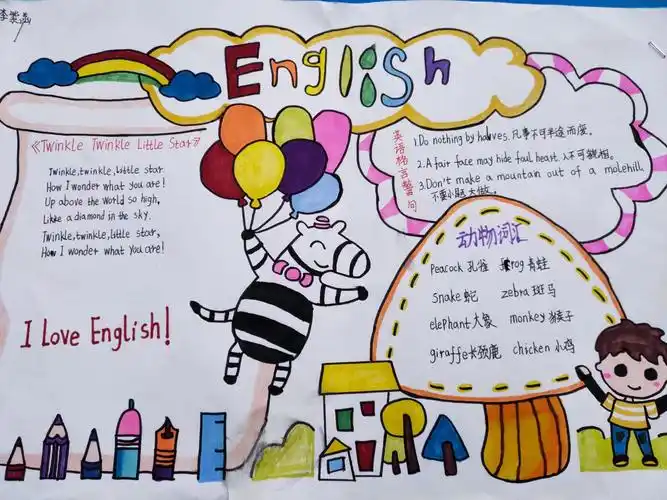 English
《Twinkle Twinkle Little Star》
Twinkle, twinkle, little star
How I wonder what you are!
Up above the world so high,
Like a diamond in the sky.
Twinkle, twinkle, little star,
How I wonder what you are!
I Love English!
英语格言警句
1. Do nothing by halves. 凡事不可半途而废。
2. A fair face may hide foul heart. 人不可貌相。
3. Don't make a mountain out of a molehill.
不要小题大做。
动物词汇
Peacock 孔雀 frog 青蛙
snake 蛇 zebra 斑马
elephant 大象 monkey 猴子
giraffe 长颈鹿 chicken 小鸡